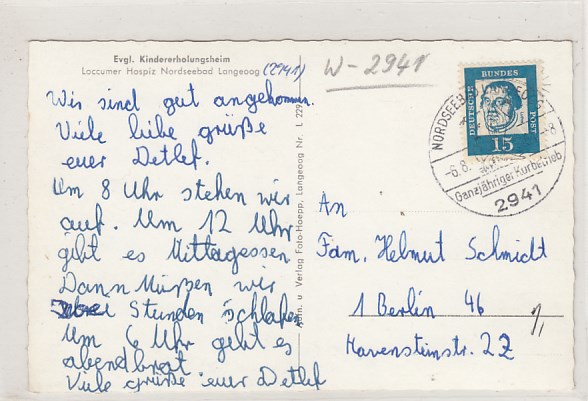 Evgl. Kindererholungsheim
Loccumer Hospiz Nordseebad Langeoog (2941)
W-2941
Wir sind gut angekommen.
Viele liebe grüße
euer Detlef.
Um 8 Uhr stehen wir
auf. Um 12 Uhr
gibt es Mittagessen.
Dann Müßen wir
Stunden schlafen
Um 6 Uhr gebt es
abendbrot
Viele grüße euer Detlef
u. Verlag Foto-Hoepp, Langeoog Nr. L 229
DEUTSCHE BUNDES POST
15
NORDSEEBAD
-6.8.
-8
Ganzjähriger Kurbetrieb
2941
An
Fam. Helmut Schmidt
1 Berlin 46
Havensteinstr. 22